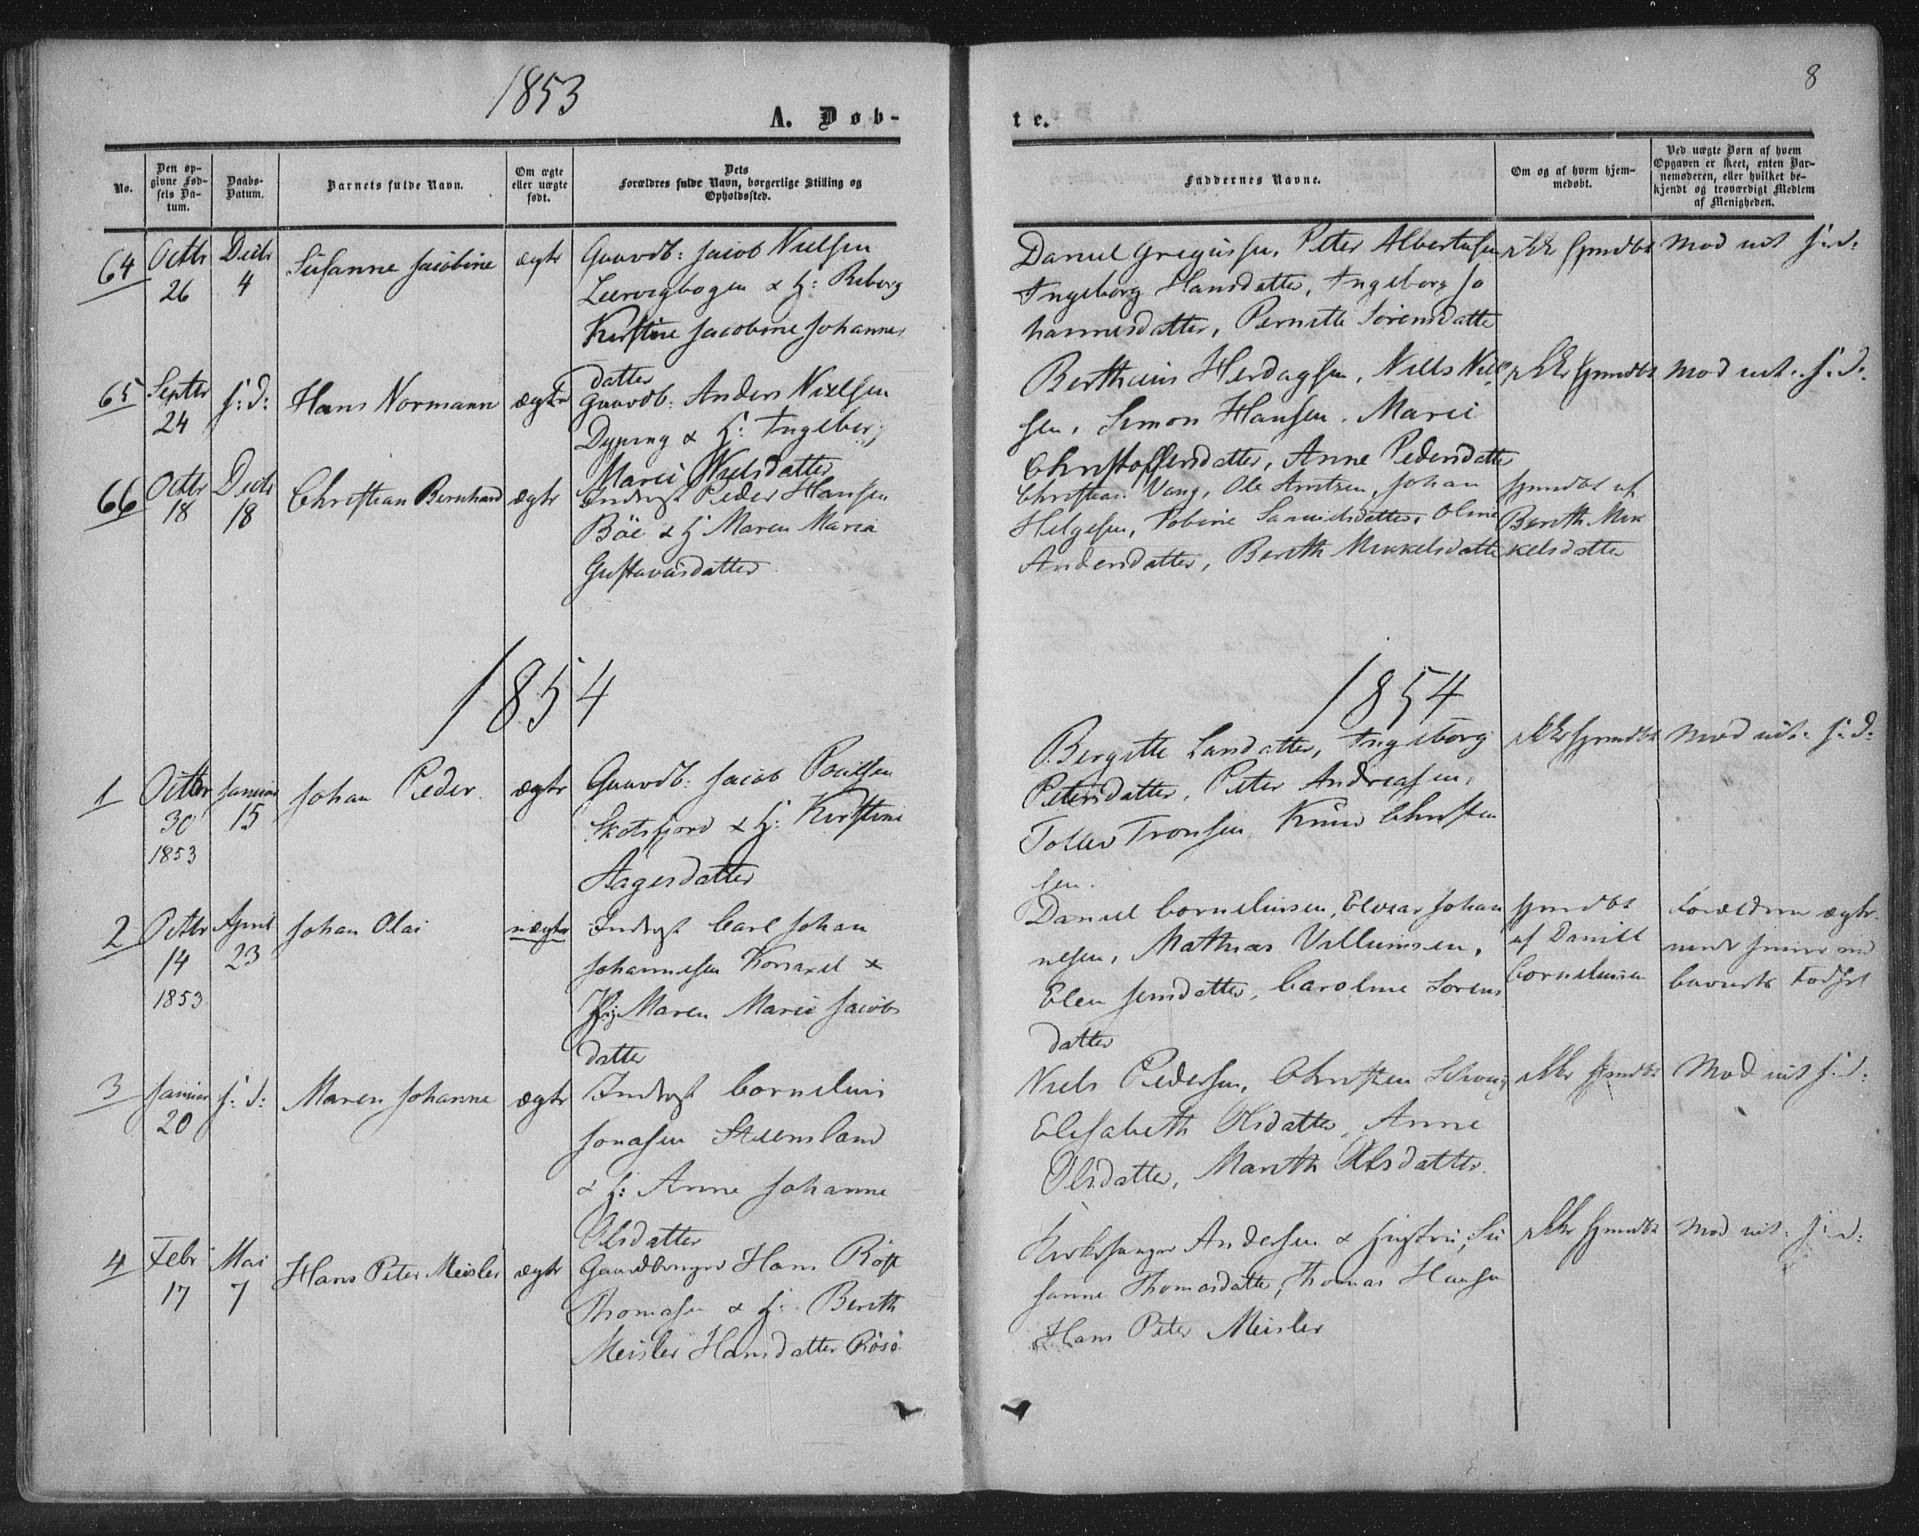 1853
8
A. Døb-
te.
No.
Den op-
givne Fød-
sels Da-
tum.
Daabs-
Datum.
Barnets fulde Navn.
Om ægte
eller uægte
født.
Dets
Forældres fulde Navn, borgerlige Stilling og
Opholdssted.
Faddernes Navne.
Om og af hvem hjem-
medøbt.
Ved uægte Børn af hvem
Opgaven er skeet, enten Bar-
nemoderen, eller hvilket be-
kjendt og troværdigt Medlem
af Menigheden.
64
Octbr
26
Decbr
4
Susanne Jacobine
ægte
Gaardb: Jacob Nielsen
Leervigbogen & H:
Kirstine Jacobine Johannes
datter
Daniel Gregusen, Peter Albertusen
Ingeborg Hansdatter, Ingeborg Jo
hannesdatter, Pernille Sørensdatte
ikke hjemdbt
Mod uit f: d:
65
Septbr
24
f: d:
Hans Normann
ægte
Gaardb: Anders Nielsen
Dyping & H: Ingeborg
Marie Nielsdatter
Berthaus Herdagsen, Niels Niel
sen, Simon Hansen, Marie
Christoffersdatter, Anne Pedersdatte
ikke hjemdbt
Mod uit. f: d:
66
Octbr
18
Decbr
18
Christian Bernhard
ægte
Inderst Peder Hansen
Böe & H Maren Maria
Gustavasdatter
Christian Vang, Ole Arntzen, Johan
Helgesen, Tobine Samuelsdatter, Oline
Andersdatter, Berith Mikkelsdatte
hjemdbt af
Berith Mik
kelsdatte
1854
1854
1
Octbr
30
1853
Januar
15
Johan Peder
ægte
Gaardb: Jacob Poulsen
Skotsfjord & H: Kirstine
Aagesdatter
Bergitte Larsdatter, Ingeborg
Petersdatter, Peter Andreasen,
Toller Tronsen, Knud Christen
sen.
ikke hjemdbt
Mod uit. f: d:
2
Octbr
14
1853
April
23
Johan Olai
uægte
Inderst Carl Johan
Johannesen &
Maren Marie Jacobs
datte
Daniel Corneliusen, Johan
nesen, Mathias Villumsen,
Elen Jensdatter, Caroline Sørens
datter
hjemdbt
af Daniel
Corneliusen
Forældrene ægte
barnets Fødsel
3
Januar
20
f: d:
Maren Johanne
ægte
Inderst Cornelius
Jonasen Steensland
& H: Anne Johanne
Olsdatter
Niels Pedersen, Christen
Elisabeth Olsdatter, Anne
Olsdatter, Marith Olsdatter.
ikke hjemdbt
Mod uit f: d:
4
Febr
17
Mai
7
Hans Peter Meisler
ægte
Gaardbruger Hans Röst
Thomasen & H: Berith
Meisler Hansdatter Rösö
Kirkesanger Andersen & Hustru, Su
sanne Thomasdatte, Thomas Hansen
Hans Peter Meisler
ikke hjemdbt
Mod uit. f: d: